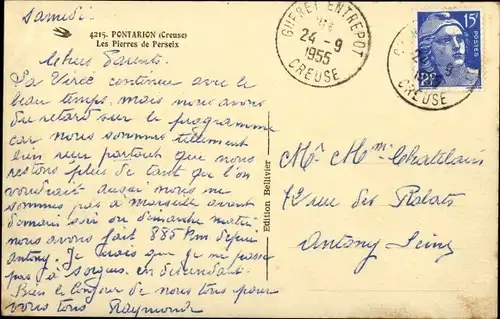 Samedi.
4215. PONTARION (Creuse)
Les Pierres de Perseix
Chers Parents.
La Virée continue avec le
beau temps, mais nous avons
du retard sur le programme
car nous sommes tellement
bien sur partout que nous
restons plus de tant que l'on
voudrait aussi nous ne
sommes pas à Marseille avant
demain soir ou dimanche matin
nous avons fait 885 Km depuis
Antony. Je crois que je ne passe
pas à Sorgues. en descendant.
Bien le bonjour de nous tous pour
vous tous Raymonde
Edition Bellivier
GUERET ENTREPOT
24 - 9
1955
CREUSE
15F
POSTES
CREUSE
Mr Mme Chatelain
72 rue des Rabats
Antony Seine